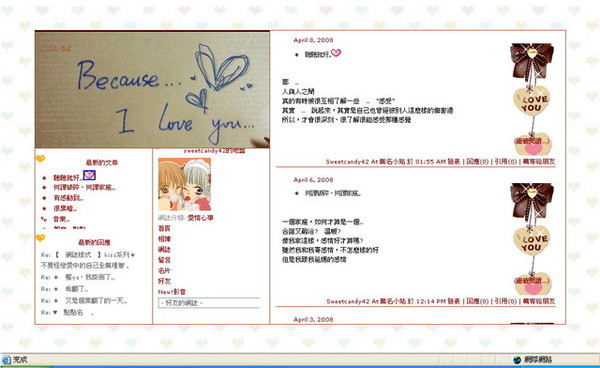 Because...
I love you...
最新的文章
聽聽就好..
何謂破碎、何謂家庭..
有感動到..
很累噠..
音樂..
最新的回應
Re: 【 網誌樣式 】kiss系列
不要怪戀愛中的自己全無理智
Re: 喔ya、我按爽了..
Re: 乖翻了..
Re: 又是個累翻了的一天..
Re: ♥ 點點名 ..
sweetcandy42的相簿
網誌分類: 愛情心事
首頁
相簿
網誌
留言
名片
好友
New!影音
- 好友的網誌 -
April 8, 2008
聽聽就好..
耶 ..
人與人之間
真的有時候很互相了解一些 .. "感受"
其實 .. 說起來，其實是自己也曾經被別人這麼樣的傷害過
所以，才會很深刻、很了解很能感受那種感覺
I LOVE YOU
(繼續閱讀...)
Sweetcandy42 At 無名小站 於 01:55 AM 發表 | 回應(0) | 引用(0) | 轉寄給朋友
April 6, 2008
何謂破碎、何謂家庭..
一個家庭，如何才算是一個..
合諧又融洽? 溫暖?
像我家這樣，感情好才算嗎?
雖然我和我哥感情，不怎麼樣的好
但是我跟我爸媽的感情
I LOVE YOU
(繼續閱讀...)
Sweetcandy42 At 無名小站 於 12:14 PM 發表 | 回應(0) | 引用(0) | 轉寄給朋友
April 3, 2008
完成
網際網路